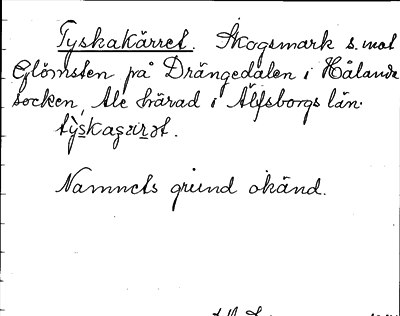 Tyskakärret. Skogsmark s. mot
Glömsten på Drängedalen i Hålanda
socken, Ale härad i Älfsborgs län.
Namnets grund okänd.